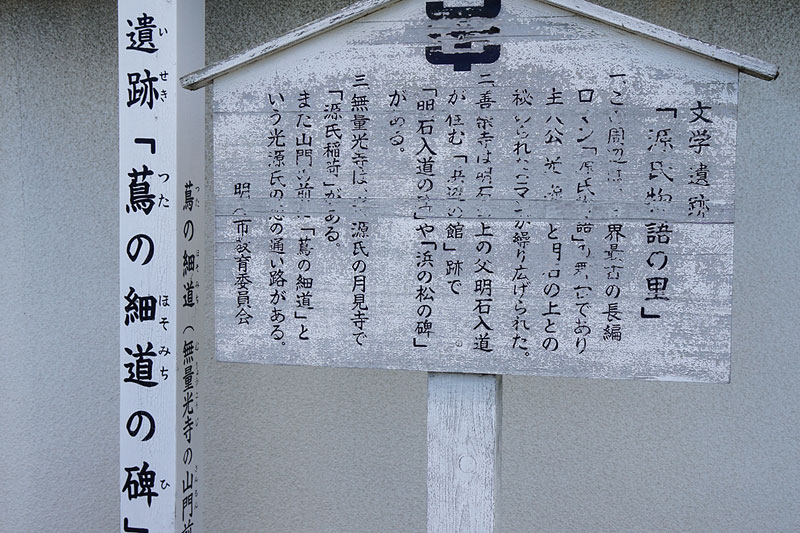 文学遺跡
「源氏物語の里」
一この周辺は世界最古の長編
ロマン「源氏物語」の舞台であり
主人公光源氏と明石の上との
秘められたロマンが繰り広げられた。
二善楽寺は明石の上の父明石入道
が住む「浜辺の館」跡で
「明石入道の碑」や「浜の松の碑」
がある。
三無量光寺は、光源氏の月見寺で
「源氏稲荷」がある。
また山門の前に「蔦の細道」と
いう光源氏の恋の通い路がある。
明石市教育委員会
つた ほそみち むりょうこうじ さんもん
蔦の細道（無量光寺の山門前
いせき つた ほそみち ひ
遺跡「蔦の細道の碑」